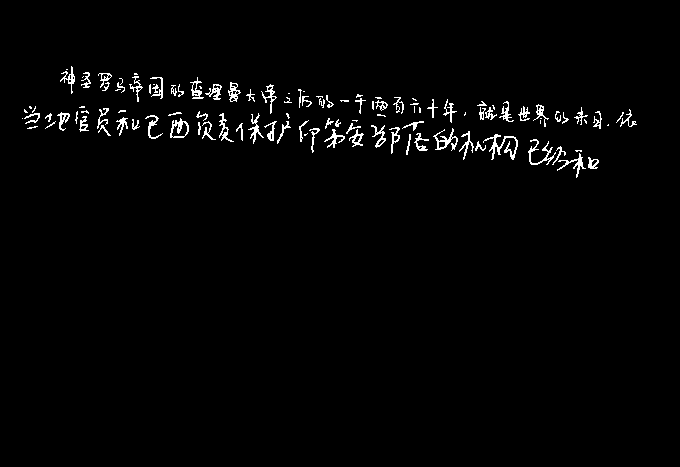 神圣罗马帝国的查理曼大帝之后的一千两百六十年，就是世界的末日.依
当地官员和巴西负责保护印第安部落的机构已经和